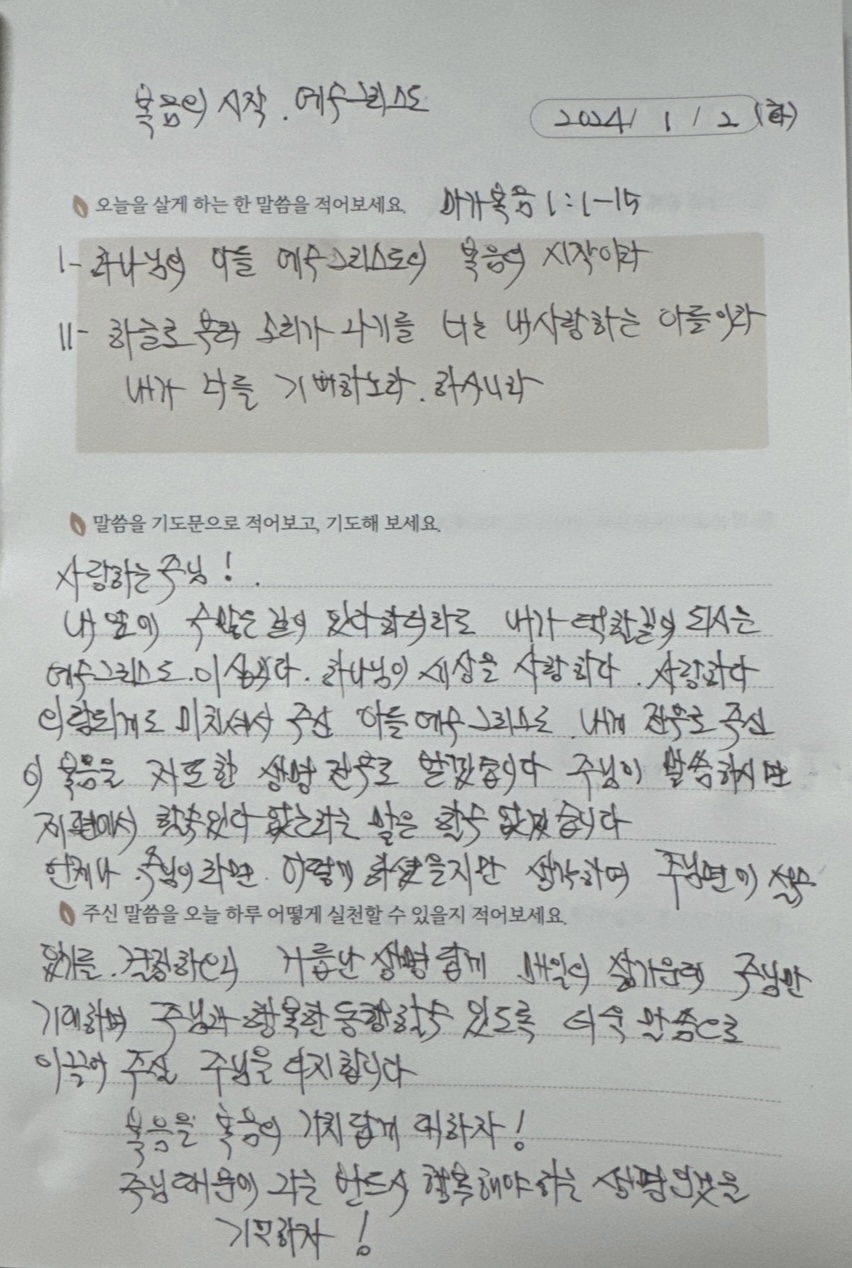 복음의 시작. 예수그리스도
2024/ 1 / 2 (화)
오늘을 살게 하는 한 말씀을 적어보세요. 마가복음 1:1-15
1- 하나님의 아들 예수그리스도의 복음의 시작이라
11- 하늘로 부터 소리가 나기를 너는 내사랑하는 아들이라
내가 너를 기뻐하노라. 하시니라
말씀을 기도문으로 적어보고, 기도해 보세요.
사랑하는 주님!.
내 앞에 수많은 길이 있다하더라도 내가 택한길의 되시는
예수그리스도.이십니다. 하나님이 세상을 사랑하다. 사랑하다
미치셔서 주신 아들 예수그리스도. 내게 전부로 주신
이 복음을 저또한 생명 전부로 받겠습니다 주님이 말씀하시면
저편에서 할수있다 없는라는 말은 할수 없겠습니다
언제나 주님이라면. 이렇게 하셨을지만 생각하며 주님편이 설수
주신 말씀을 오늘 하루 어떻게 실천할 수 있을지 적어보세요.
있기를. 결정하오니 거듭난 생명 답게 매일의 삶가운데 주님만
기대하며 주님과 행복한 동행할수 있도록 더욱 말씀으로
이끌어 주실 주님을 의지합니다
복음을 복음의 가치답게 대하자!
주님때문에 나는 반드시 행복해야하는 생명인것을
기억하자!